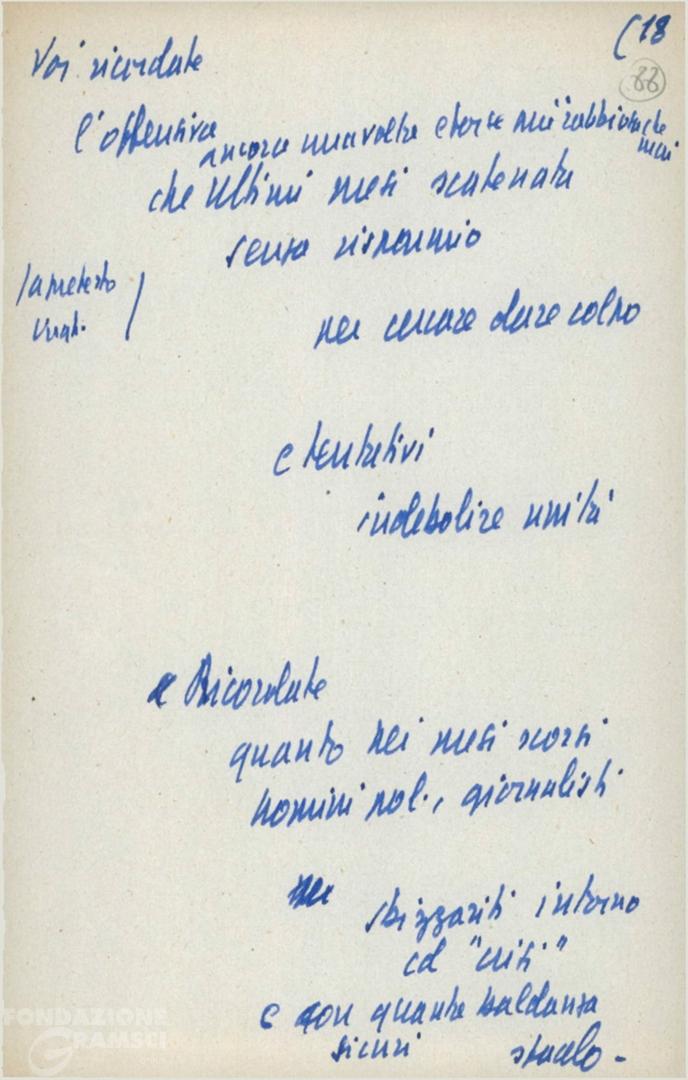 (18
33
Voi ricordate
l'offensiva
ancora una volta e forse più rabbiosa che
mai
che ultimi mesi scatenata
senza risparmio
pretesto
Ungh.
per cercare dare colpo
e tentativi
indebolire unità
e Ricordate
quanto nei mesi scorsi
uomini pol., giornalisti
sbizzariti intorno
cd "crisi"
e con quanta baldanza
sicuri
FONDAZIONE
GRAMSCI